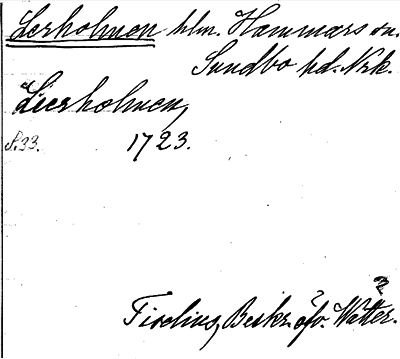 Lerholmen hlm. Hammars sn.
Sundbo hd. Nrk.
Lierholmen,
S. 33. 1723.
Tiselius, Beskr. öfv. Wätter.